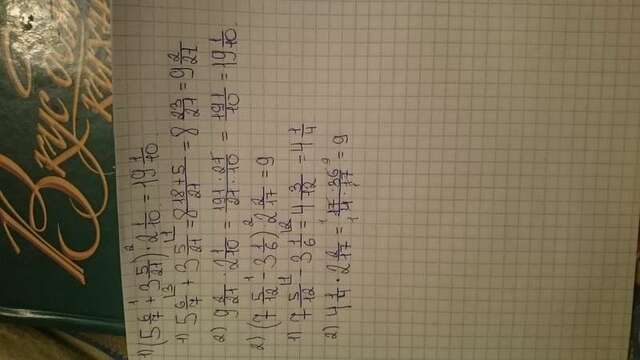 Вкус
кухн
1) (5 6/7 + 3 5/21) · 2 1/10 = 19 1/10.
1) 5 6/7 + 3 5/21 = 8 18+5/21 = 8 23/21 = 9 2/21
2) 9 2/21 · 2 1/10 = 191·21/21·10 = 191/10 = 19 1/10.
2) (7 5/12 - 3 1/6) 2 2/17 = 9
1) 7 5/12 - 3 1/6 = 4 3/12 = 4 1/4
2) 4 1/4 · 2 2/17 = 17·36/4·17 = 9